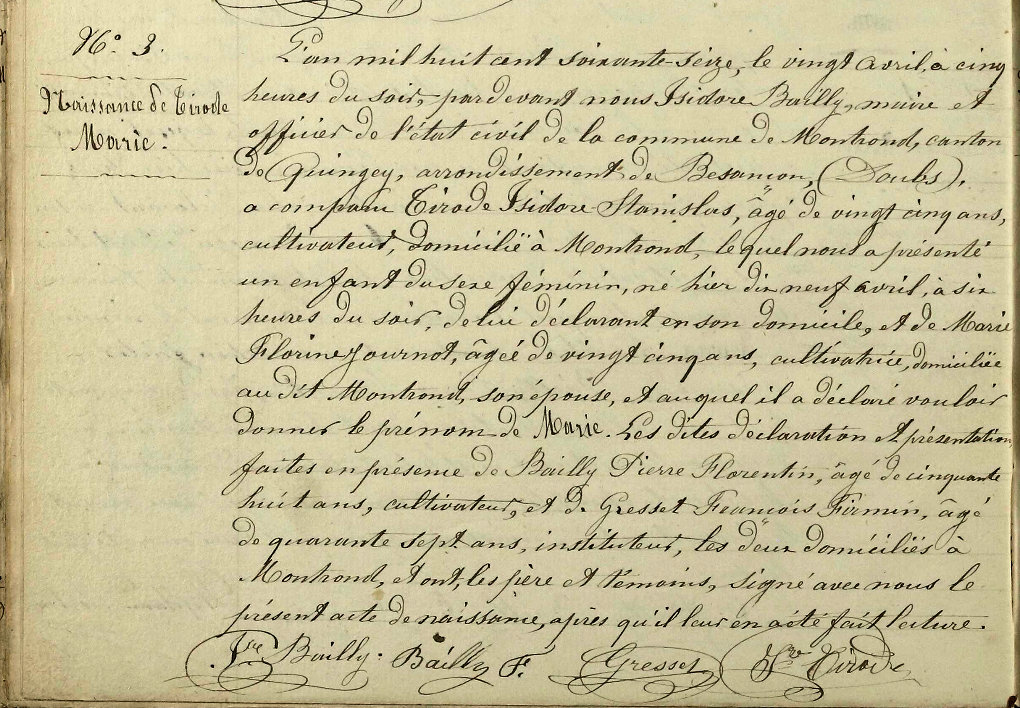 N.o 3.
Naissance de Tirode
Marie.
L'an mil huit cent soixante-seize, le vingt avril, à cinq
heures du soir, pardevant nous Isidore Bailly, maire et
officier de l'état civil de la commune de Montrond, canton
de Quingey, arrondissement de Besançon, (Doubs),
a comparu Tirode Isidore Stanislas, âgé de vingt cinq ans,
cultivateur, domicilié à Montrond, lequel nous a présenté
un enfant du sexe féminin, né hier dix neuf avril, à six
heures du soir, de lui déclarant en son domicile, et de Marie
Florine Journot, âgée de vingt cinq ans, cultivatrice, domiciliée
au dit Montrond, son épouse, et auquel il a déclaré vouloir
donner le prénom de Marie. Les dites déclaration et présentation
faites en présence de Bailly Pierre Florentin, âgé de cinquante
huit ans, cultivateur, et de Gresset François Firmin, âgé
de quarante sept ans, instituteur, les deux domiciliés à
Montrond, et ont, les père et témoins, signé avec nous le
présent acte de naissance, après qu'il leur en a été fait lecture.
Bailly. Bailly F. Gresset Tirode